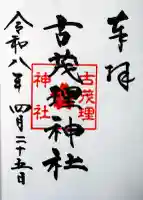 奉拝
古茂理神社
古茂理
神社
令和八年 四月二十五日